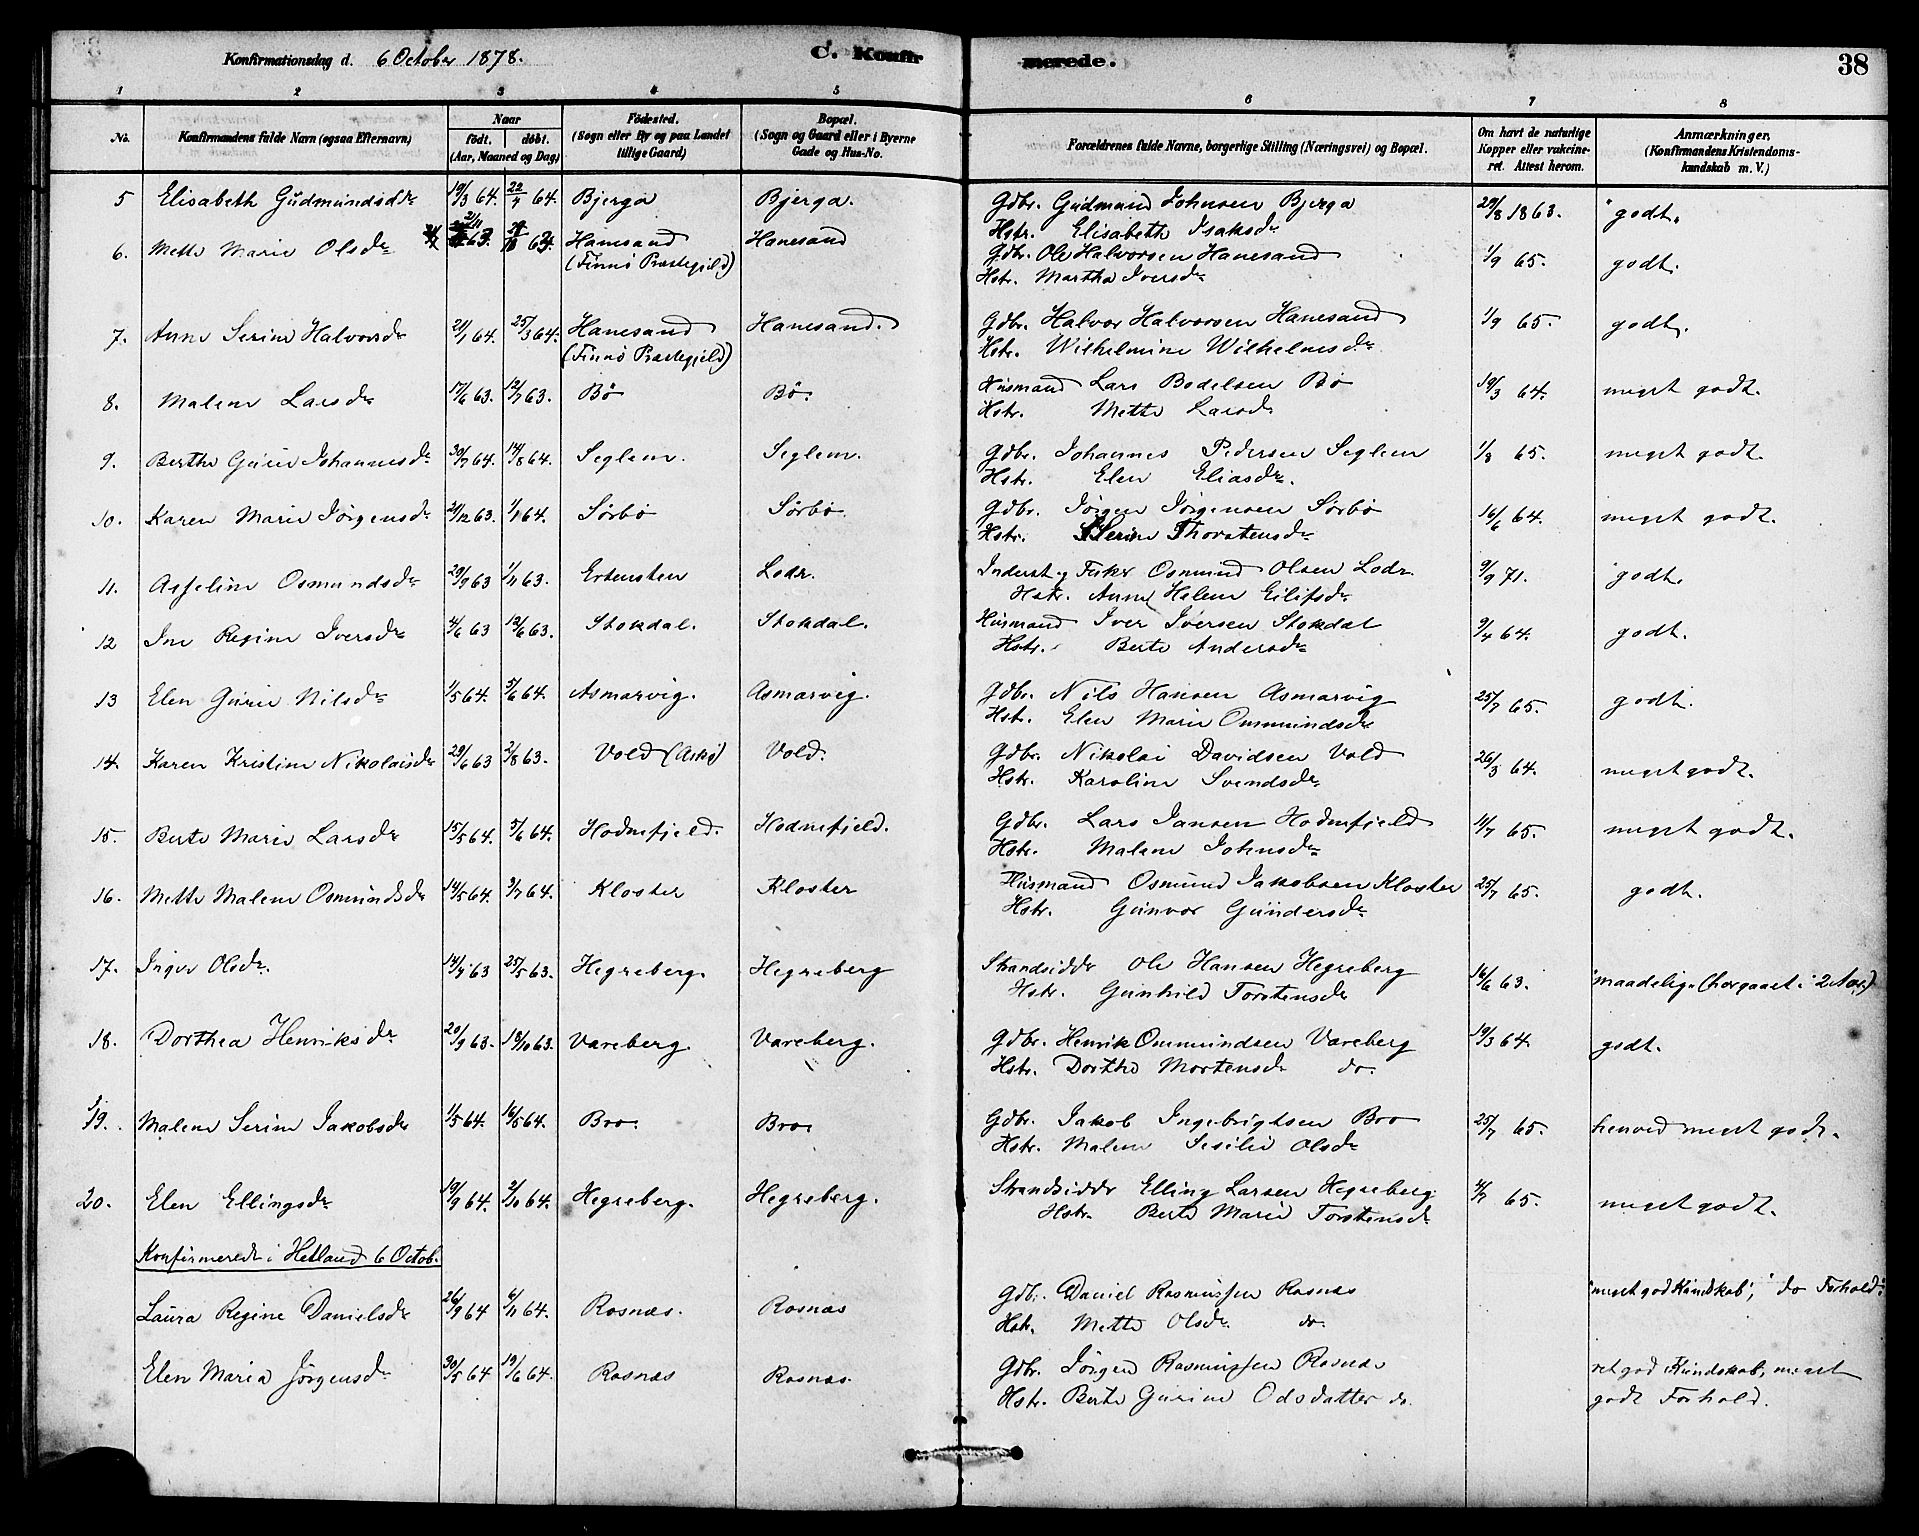 Konfirmationsdag d. 6 October 1878. C. Konfirmerede. 38
1 2 3 4 5 6 7 8
No. Konfirmandens fulde Navn (ogsaa Efternavn) Naar født. døbt. (Aar, Maaned og Dag) Fødested. (Sogn eller By og paa Landet tillige Gaard) Bopæl. (Sogn og Gaard eller i Byerne Gade og Hus-No. Forældrenes fulde Navne, borgerlige Stilling (Næringsvei) og Bopæl. Om havt de naturlige Kopper eller vakcineret. Attest herom. Anmærkninger. (Konfirmandens Kristendomskundskab m. V.)
5 Elisabeth Gudmundsdr 19/3 64. 22/4 64. Bjerga Bjerga. Gdbr. Gudmund Johnsen Bjerga 29/8 1863. godt.
Hstr. Elisabeth Isaksdr
6. Mette Marie Olsdr Hanesand Hanesand Gdbr. Ole Halvorsen Hanesand 1/9 65. godt.
(Finnö Præstegjeld) Hstr. Martha Iversdr
7. Anne Serine Halvorsdr 21/1 64. 25/3 64. Hanesand Hanesand. Gdbr. Halvor Halvorsen Hanesand 1/9 65. godt.
(Finnö Præstegjeld) Hstr. Wilhelmine Wilhelmsdr
8. Malene Larsdr 17/6 63. 12/7 63. Bö Bö. Husmand Lars Bodelsen Bö 19/3 64. meget godt.
Hstr. Mette Larsdr
9. Berthe Gurie Johannesdr 30/7 64. 14/8 64. Seglem. Seglem. Gdbr. Johannes Pedersen Seglem 1/8 65. meget godt.
Hstr. Elen Eliasdr.
10. Karen Marie Jörgensdr 21/12 63. 1/1 64. Sörbö Sörbö. Gdbr. Jörgen Jörgensen Sörbö 16/6 64. meget godt.
Hstr. Serine Thorstensdr
11. Asseline Osmundsdr 29/9 63 1/11 63. Ertensten Lodr. Inderst og Fisker Osmund Olsen Lodr. 9/9 71. godt.
Hstr. Anne Helene Eilifsdr
12 Ine Regine Iversdr 4/6 63 12/6 63. Stokdal. Stokdal. Husmand Iver Iversen Stokdal 9/4 64. godt.
Hstr. Berte Andersdr
13 Elen Gurie Nilsdr 1/5 64. 5/6 64. Asmarvig. Asmarvig. Gdbr. Nils Hansen Asmarvig 25/7 65. godt.
Hstr. Elen Marie Ommundsdr
14. Karen Kristine Nikolaisdr 29/6 63 2/8 63. Vold (Askö) Vold. Gdbr. Nikolai Davidsen Vold 26/3 64. meget godt.
Hstr. Karoline Svendsdr
15. Berte Marie Larsdr 15/5 64. 5/6 64. Hodnefjeld. Hodnefjeld. Gdbr. Lars Jansen Hodnefjeld 11/7 65. meget godt.
Hstr. Malene Johnsdr
16. Mette Malene Osmundsdr 14/5 64. 3/7 64. Kloster Kloster Husmand Osmund Jakobsen Kloster 25/7 65. godt.
Hstr. Gunvor Gundersdr
17. Inger Olsdr. 14/4 63 25/5 63. Hegreberg. Hegreberg Strandsidder Ole Hansen Hegreberg 16/6 63. maadelig. (horgaaet i 2 Aar)
Hstr. Gunhild Torstensdr
18. Dorthea Henriksdr 20/9 63. 18/10 63. Vareberg. Vareberg. Gdbr. Henrik Ommundsen Vareberg 19/3 64. godt.
Hstr. Dorthe Mortensdr do.
19. Malene Serine Jakobsdr 1/5 64. 16/5 64. Bro. Bro. Gdbr. Jakob Ingebrigtsen Bro 25/7 65. henved meget godt.
Hstr. Malene Sesilie Olsdr
20. Elen Ellingsdr 19/9 64. 2/10 64. Hegreberg. Hegreberg. Strandsidder Elling Larsen Hegreberg 4/7 65. meget godt.
Hstr. Berte Marie Torstensdr
Konfirmerede i Hetland 6 Octob.
Laura Regine Danielsdr 26/9 64 6/11 64. Rosnæs. Rosnæs Gdbr. Daniel Rasmussen Rosnæs "meget god Kundskab," "do Forhold."
Hstr. Mette Olsdr do.
Elen Maria Jörgensdr 30/5 64 19/6 64. Rosnæs Rosnæs. Gdbr. Jörgen Rasmussen Rosnæs ret god Kundskab, meget
Hstr. Berte Gurine Odsdatter do. godt Forhold.